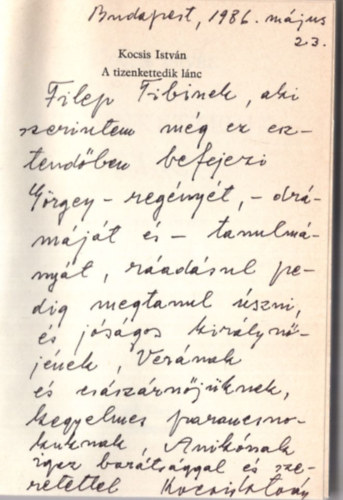 Budapest, 1986. május
23.
Kocsis István
A tizenkettedik lánc
Filep Tibinek, aki
szerintem még ez esz-
tendőben befejezi
Görgey-regényét, - drá-
máját és - tanulmá-
nyát, ráadásul pe-
dig megtanul úszni,
és jóságos királynő-
jének, Verának
és császárnőjüknek,
kegyelmes parancsno-
kuknak Anikónak
igaz barátsággal és sze-
retettel Kocsis István